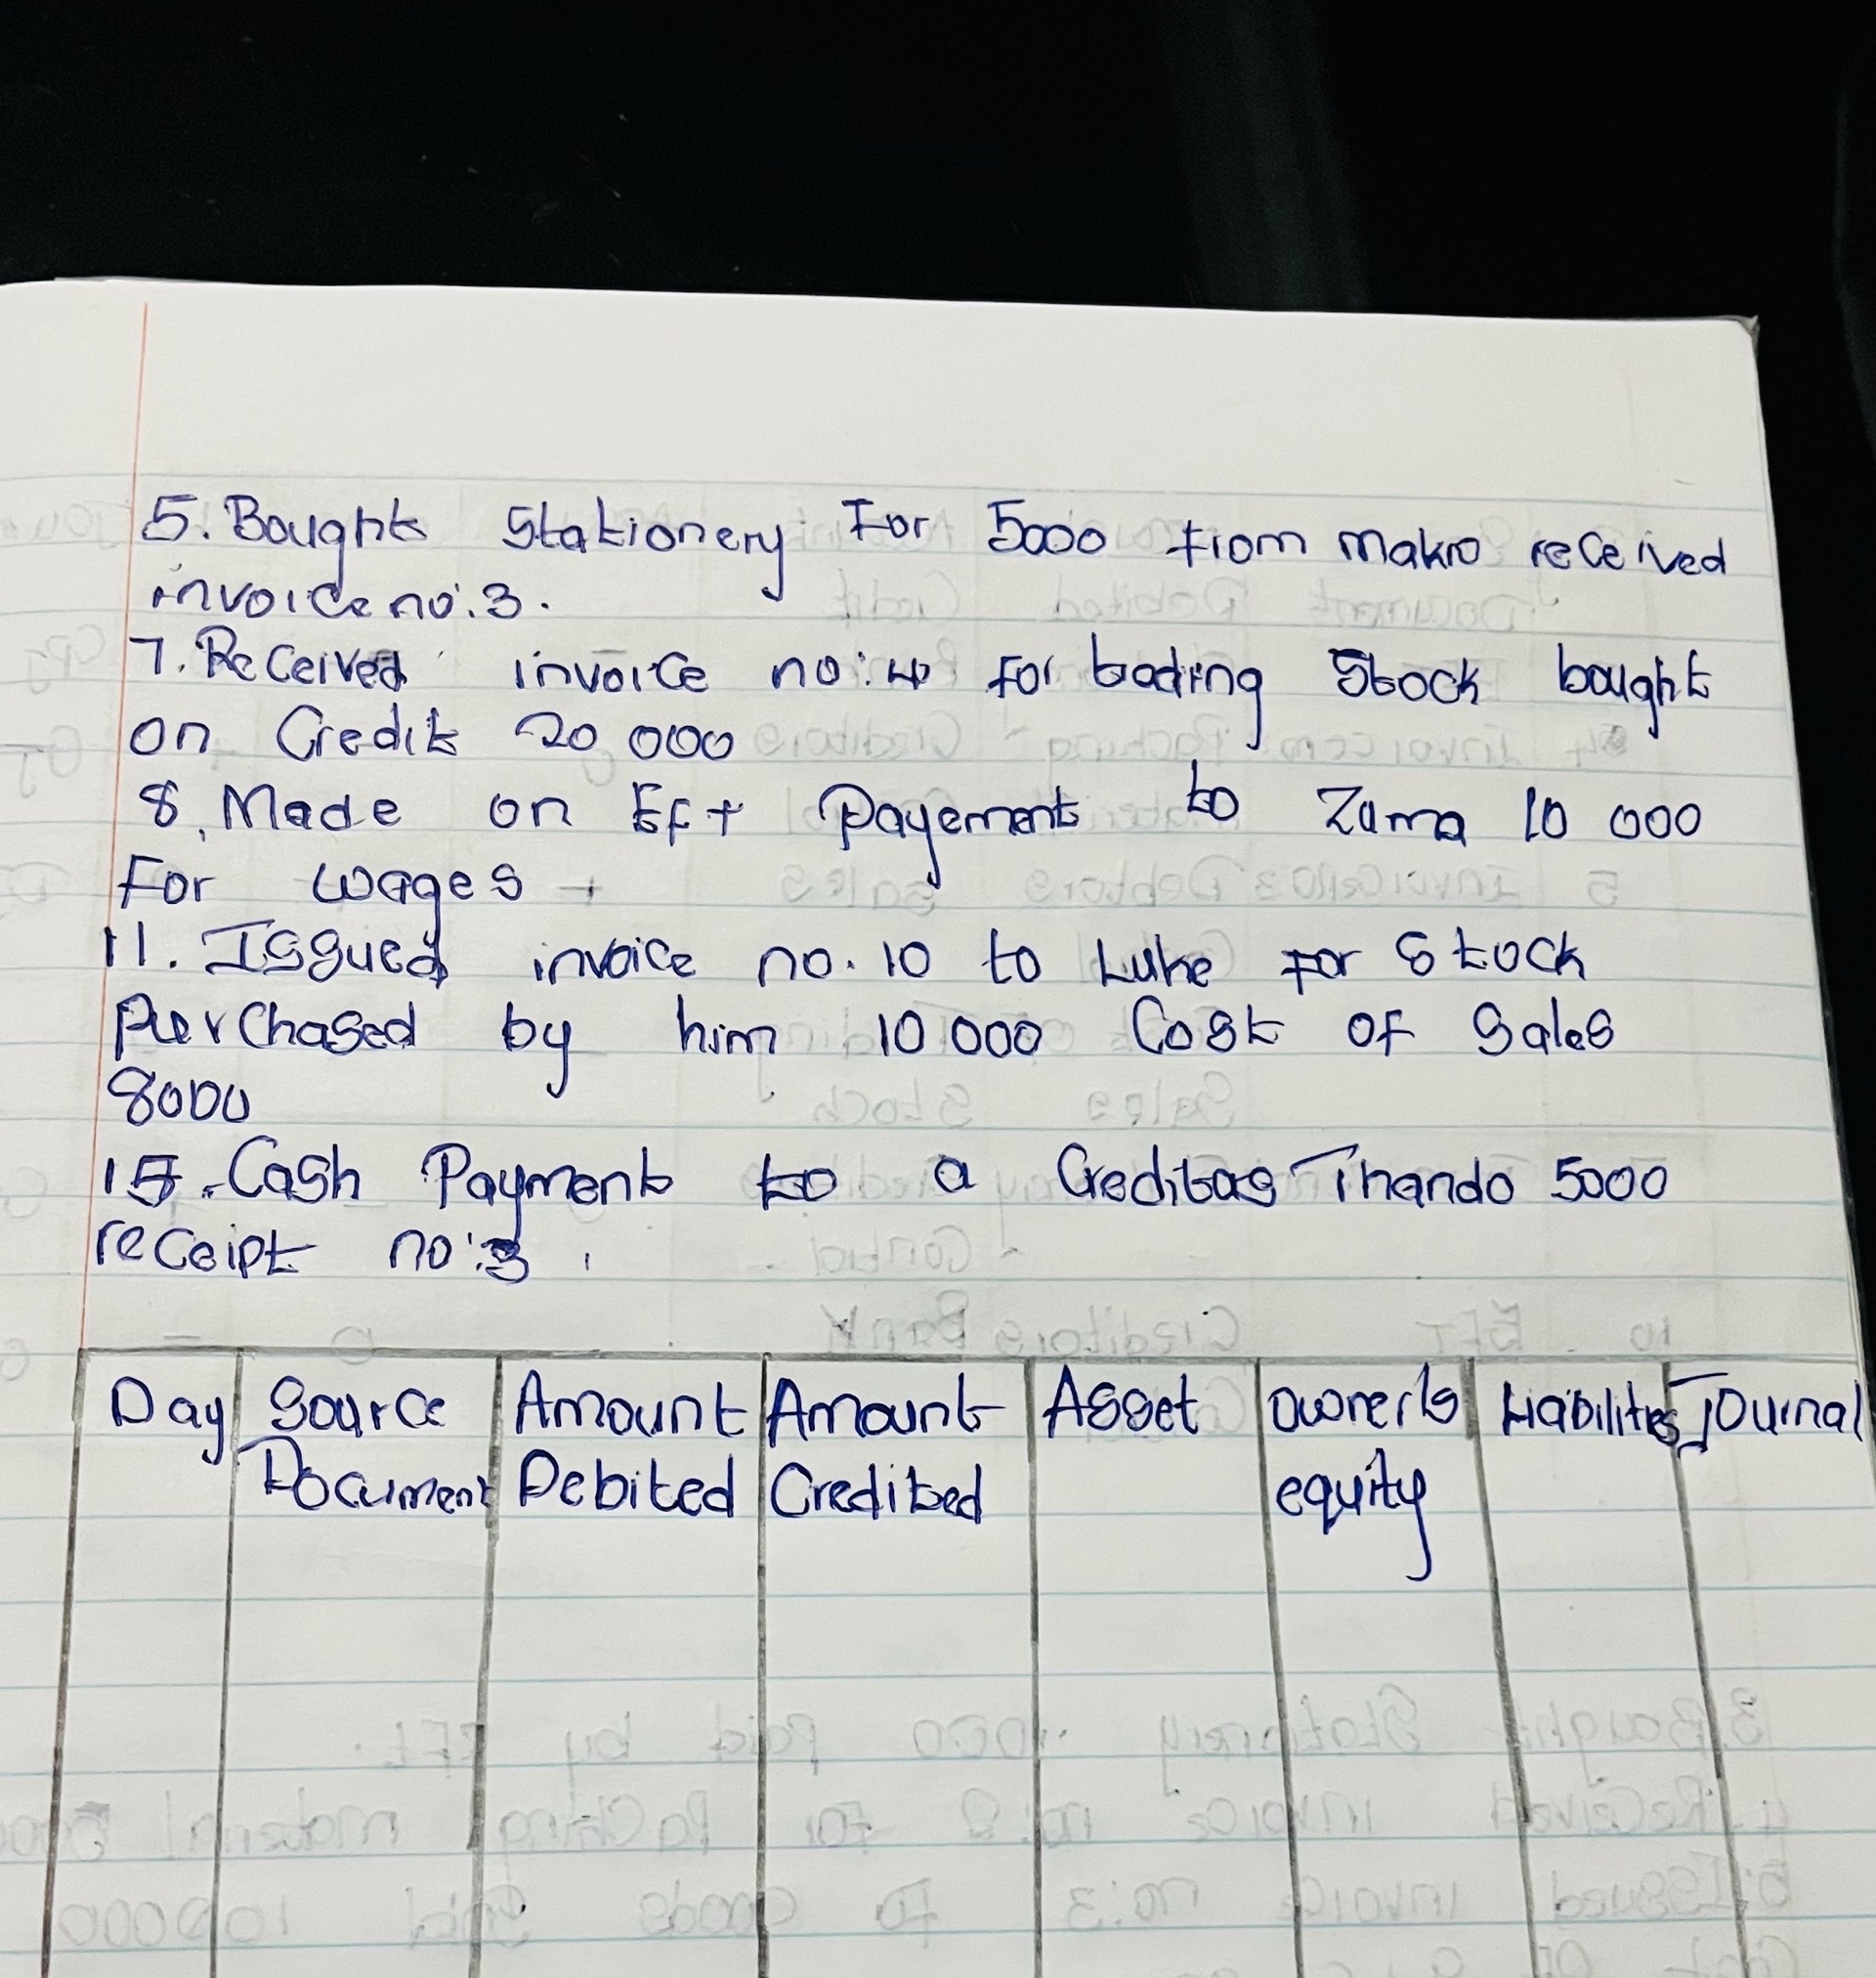 5. Bought Stationery For 5000 from makro received
invoice no:3.
7. Received invoice no:4 For trading Stock bought
on Credit 20 000
8. Made on Eft Payement to Zuma 10 000
For wages
11. Issued invoice no. 10 to Luke For Stock
Purchased by him 10 000 Cost of Sales
8000
15. Cash Payment to a Creditas Thando 5000
receipt no:3.
Day Source Document Amount Debited Amount Credited Asset owner's equity Liabilities Journal